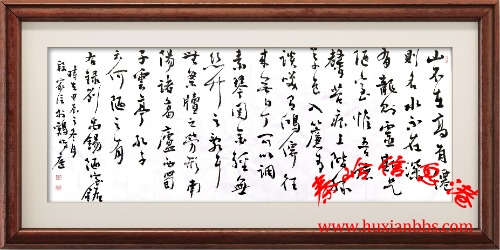 山不在高有僊
則名水不在深
有龍則靈斯是
陋室惟吾德
馨苔痕上階綠
草色入簾青
談笑有鴻儒往
來無白丁可以調
素琴閱金經無
絲竹之亂耳
無案牘之勞形南
陽諸葛廬西蜀
子雲亭孔子
云何陋之有
右錄劉禹錫陋室銘
信息港
www.huxianbbs.com